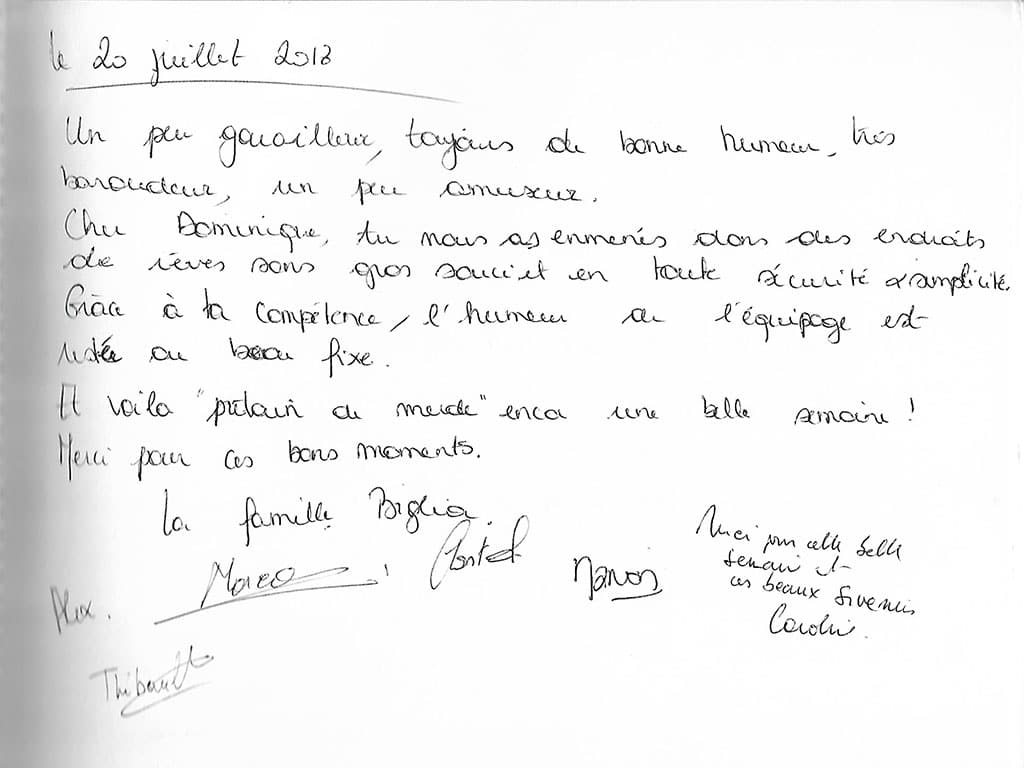 le 20 juillet 2018
Un peu gouailleur, toujours de bonne humeur, très
baroudeur, un peu amuseur.
Cher Dominique, tu nous as enmenés dans des endroits
de rêves sans gros souci et en toute sécurité & simplicité.
Grâce à ta compétence, l'humeur de l'équipage est
restée au beau fixe.
Et voila "putain de merde" encor une belle semaine !
Merci pour ces bons moments.
La famille Biglia.
Merci pour cette belle
semaine et
ces beaux souvenirs
Marco
Manon
Alex.
Thibault